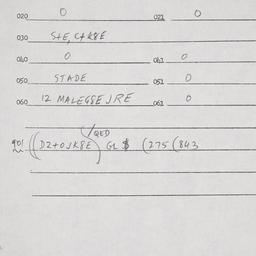 020 0 021 0
030 S+E, C+K8E
040 0 041 0
050 STADE 051 0
060 12 MALEG8E JRE 061 0
/QED
901 ((DZ+OJK8E) GL $ (275 (843